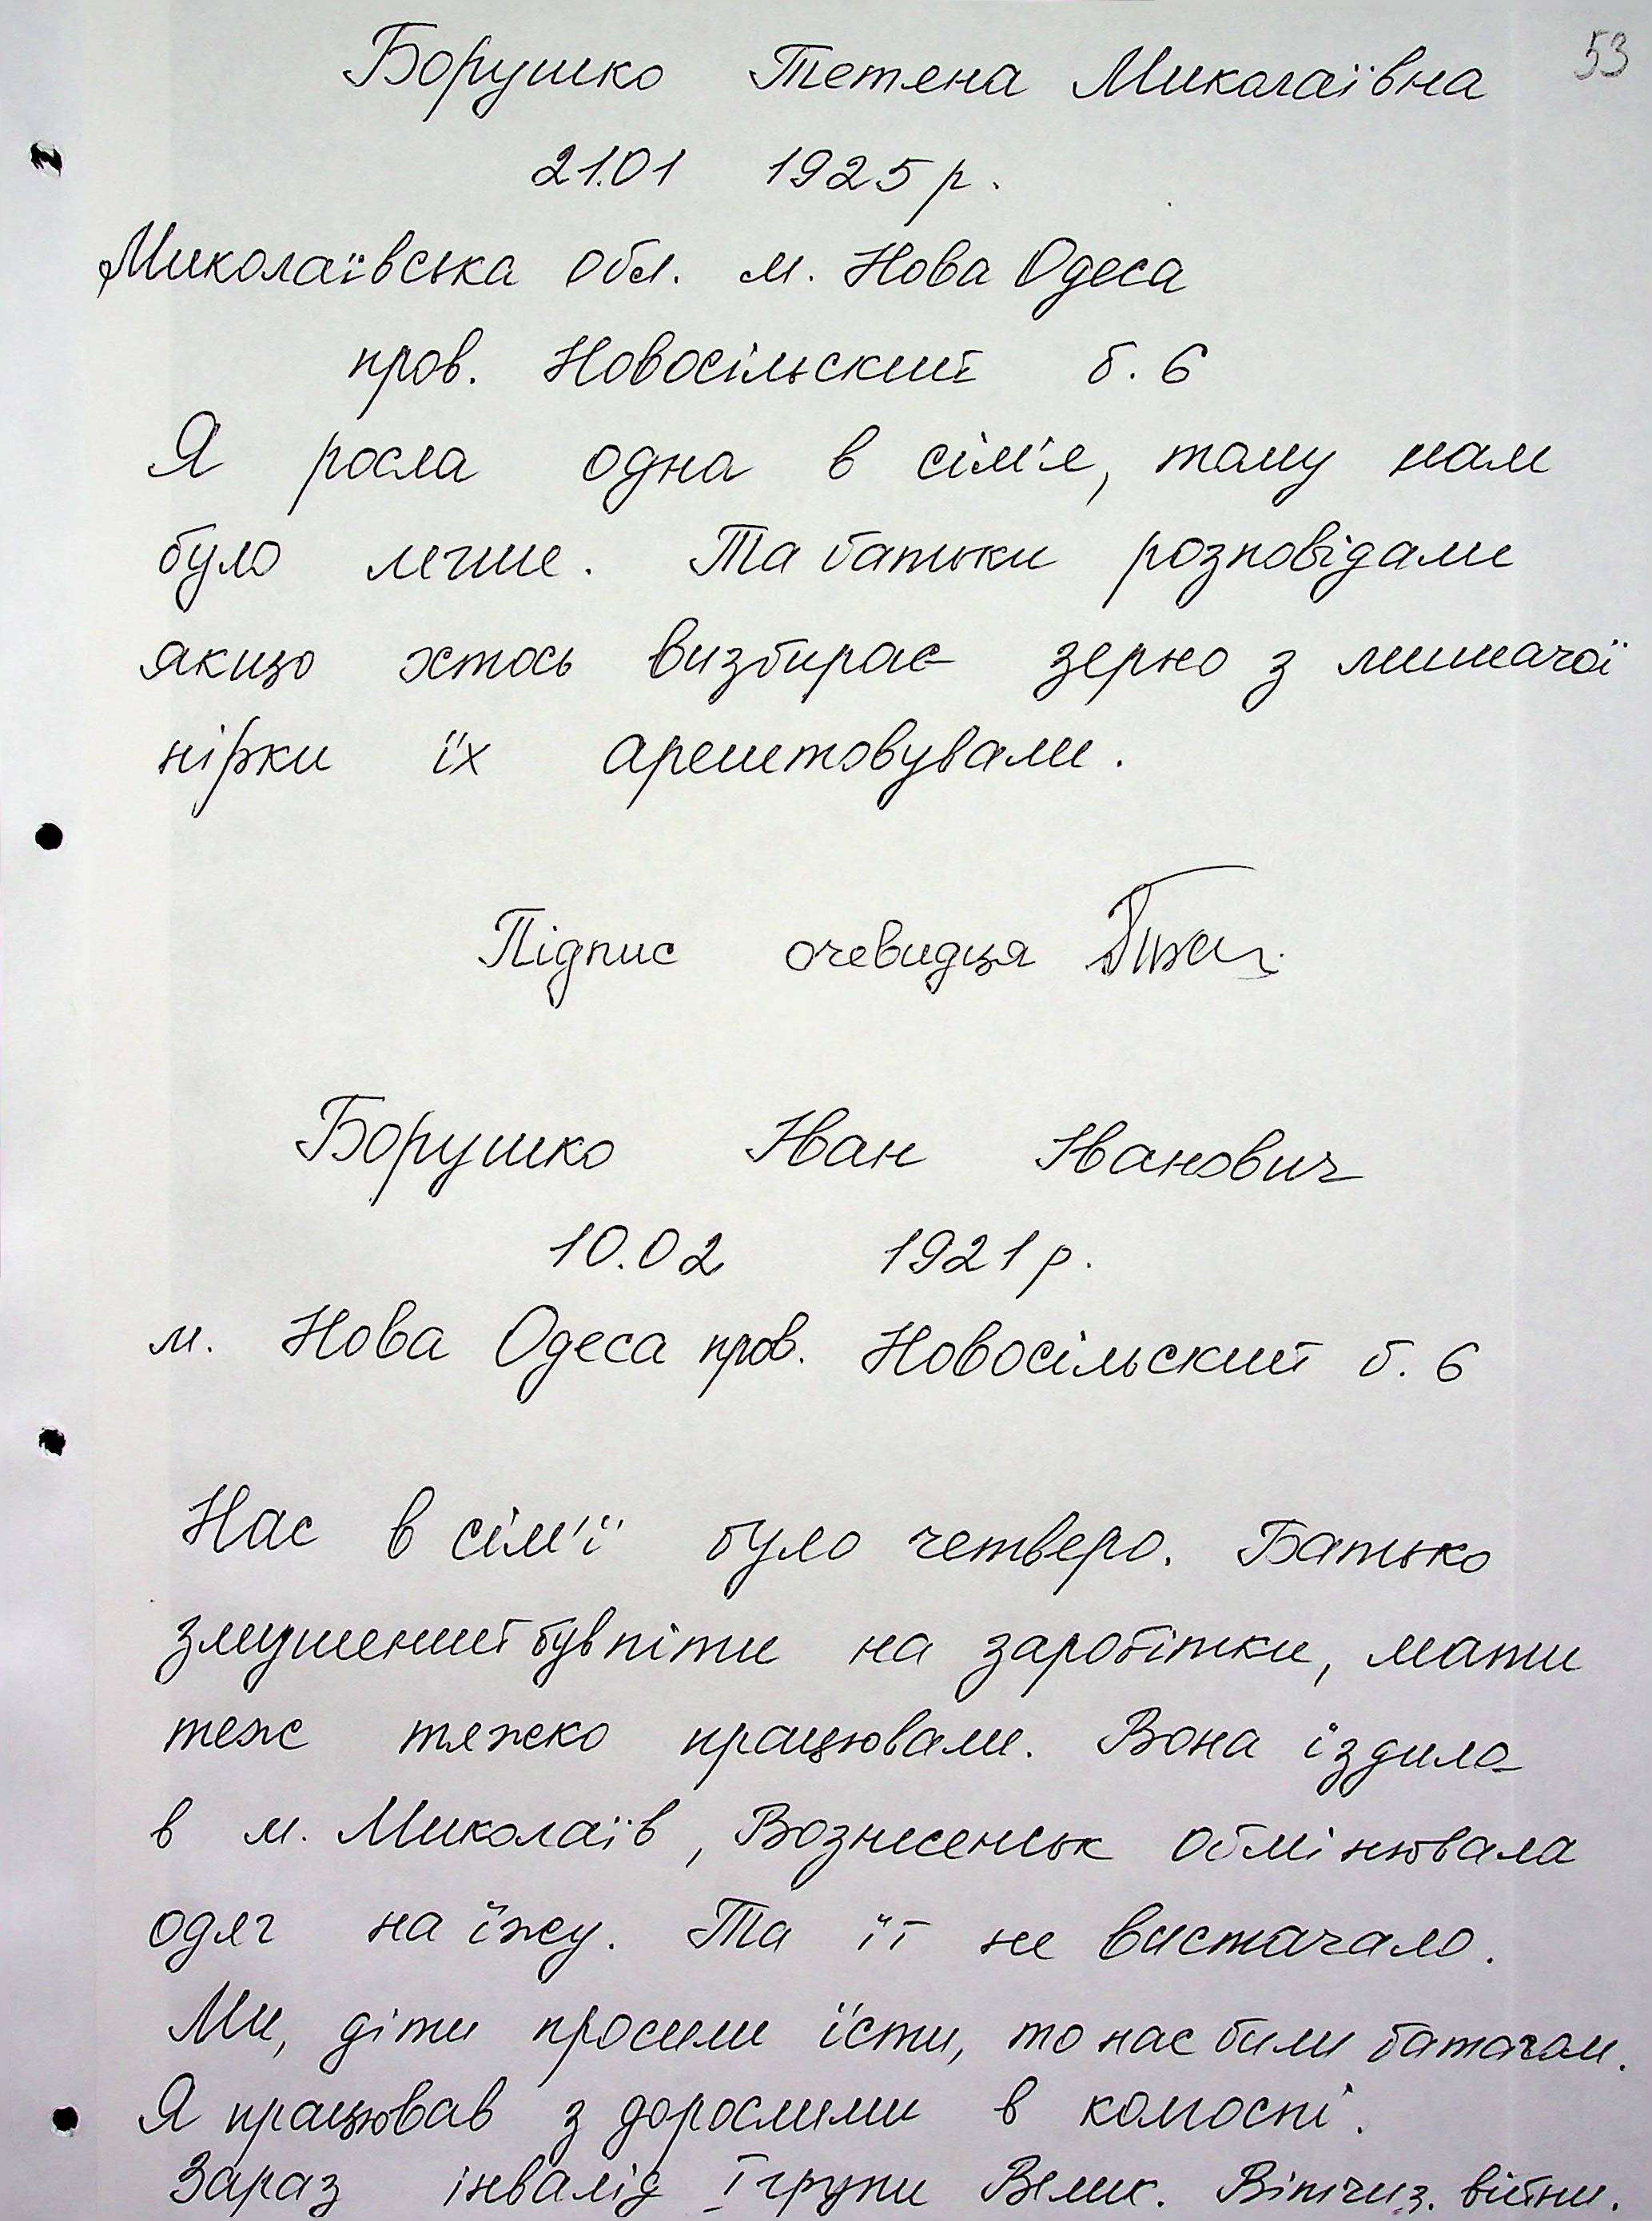 53
Борушко Тетяна Миколаївна
21.01 1925 р.
Миколаївська обл. м. Нова Одеса
пров. Новосільский б. 6
Я росла одна в сім'я, тому нам
було легше. Та батьки розповідали
якщо хтось визбирає зерно з мишачої
нірки їх арештовували.
Підпис очевидця
Борушко Іван Іванович
10.02 1921 р.
м. Нова Одеса пров. Новосільский б. 6
Нас в сім'ї було четверо. Батько
змушений був піти на заробітки, мати
теж тяжко працювали. Вона їздила
в м. Миколаїв, Вознесенськ обмінювала
одяг на їжу. Та її не вистачало.
Ми, діти просили їсти, то нас били батогом.
Я працював з дорослими в колгоспі.
Зараз інвалід I групи Велик. Вітчиз. війни.